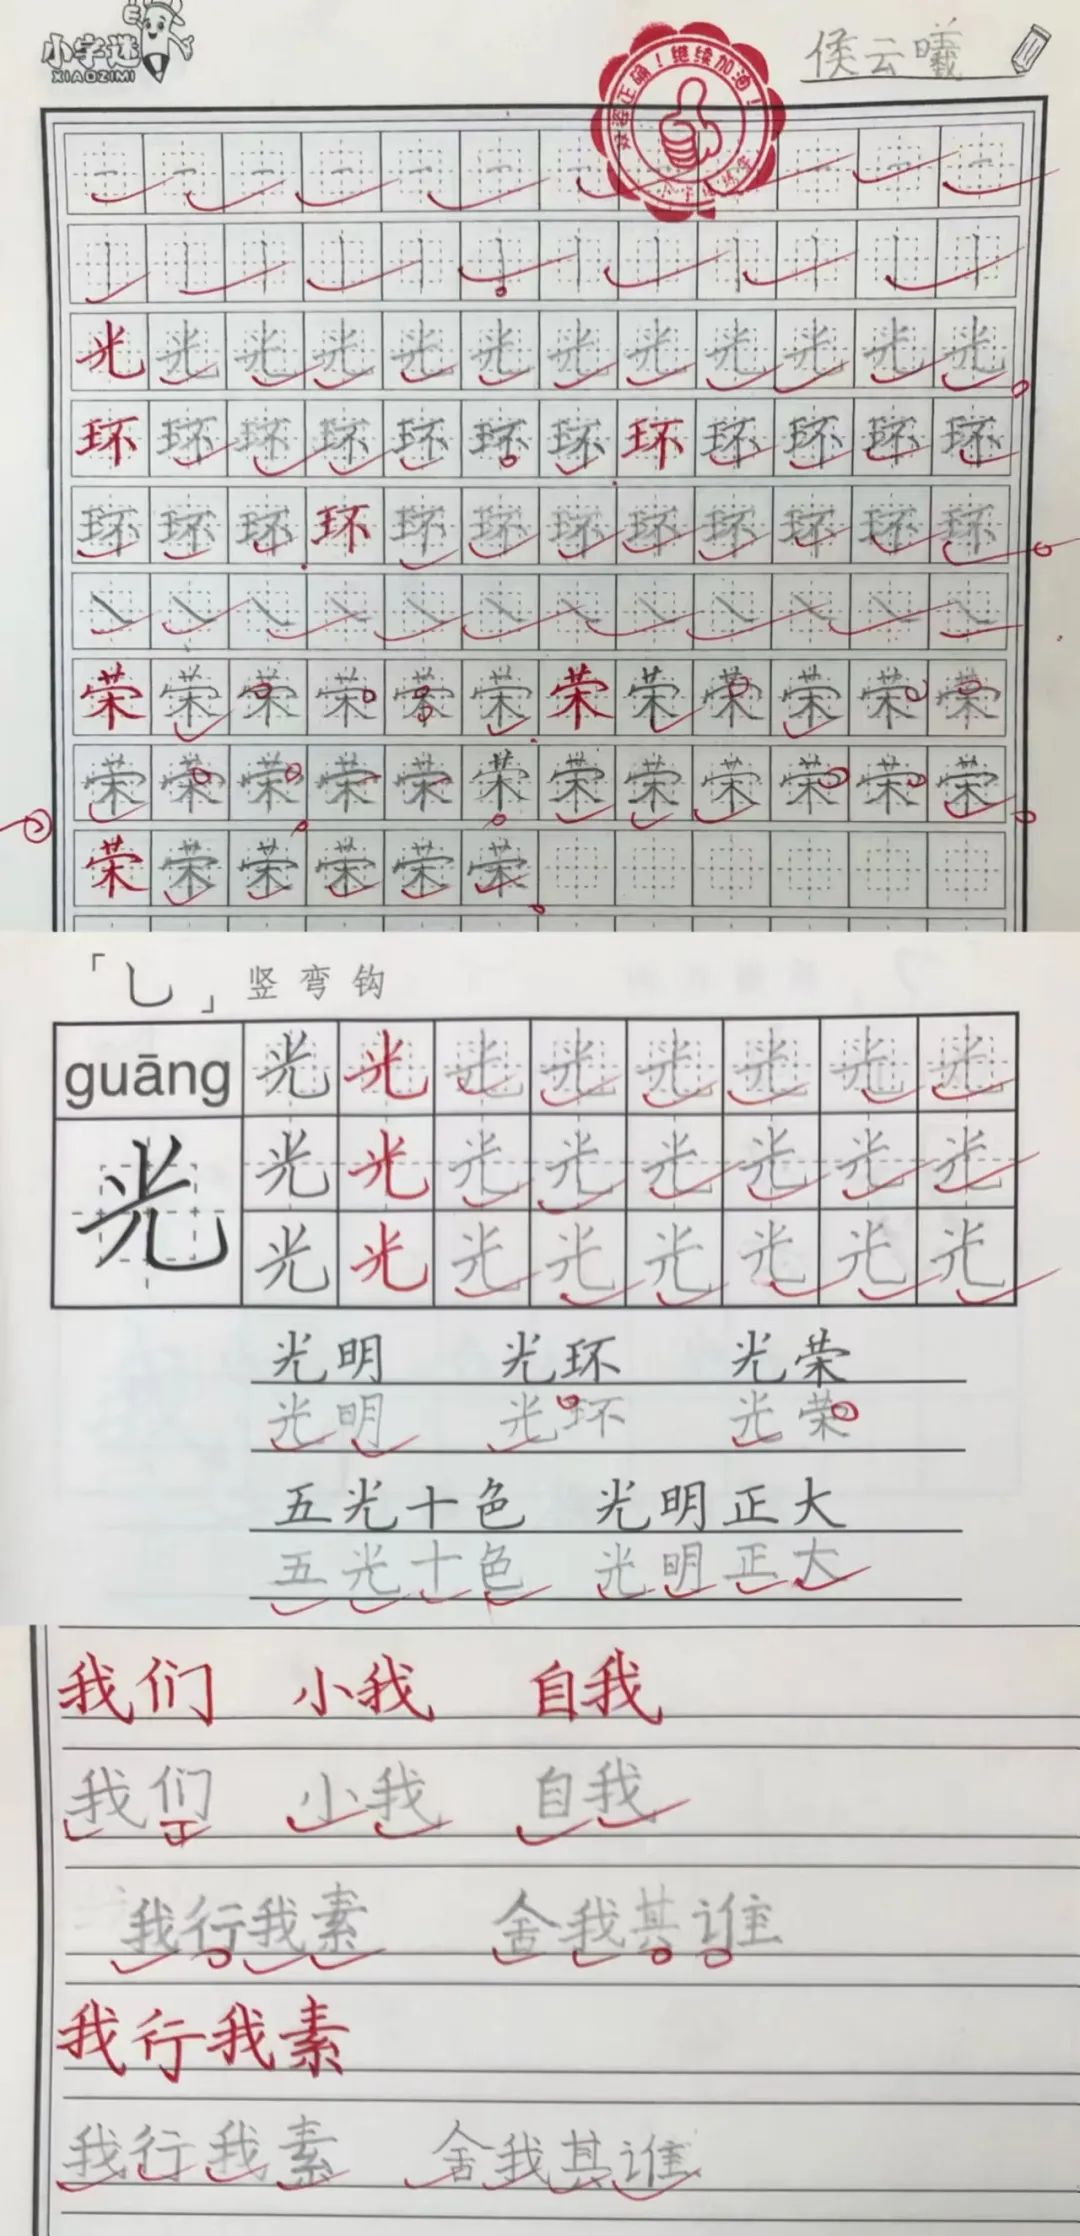 小字迷
XIAOZIMI
双姿正确！继续加油！
侯云曦
一 一 一 一 一 一 一 一 一 一
丨 丨 丨 丨 丨 丨 丨 丨 丨 丨 丨 丨
光 光 光 光 光 光 光 光 光 光 光 光
环 环 环 环 环 环 环 环 环 环 环 环
环 环 环 环 环 环 环 环 环 环 环 环
㇏ ㇏ ㇏ ㇏ ㇏ ㇏ ㇏ ㇏ ㇏ ㇏ ㇏ ㇏
荣 荣 荣 荣 荣 荣 荣 荣 荣 荣 荣 荣
荣 荣 荣 荣 荣 荣 荣 荣 荣 荣 荣 荣
荣 荣 荣 荣 荣 荣
「乚」竖弯钩
guāng 光 光 光 光 光 光 光 光
光 光 光 光 光 光 光 光 光
光 光 光 光 光 光 光 光
光明 光环 光荣
光明 光环 光荣
五光十色 光明正大
五光十色 光明正大
我们 小我 自我
我们 小我 自我
我行我素 舍我其谁
我行我素
我行我素 舍我其谁